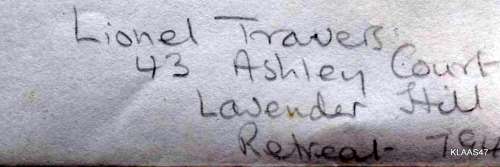 Lionel Travers.
43 Ashley Court
Lavender Hill
Retreat-
KLAAS47